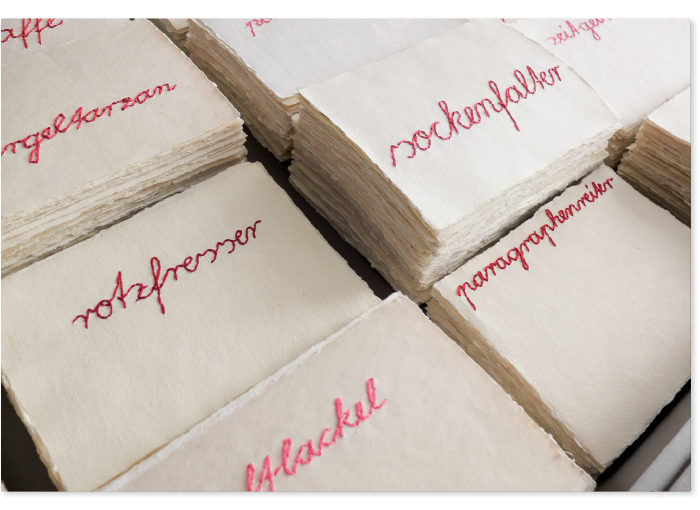 affe
rgeltarzan
sockenfalter
zeitgei
rotzfresser
paragraphenreiter
lackel